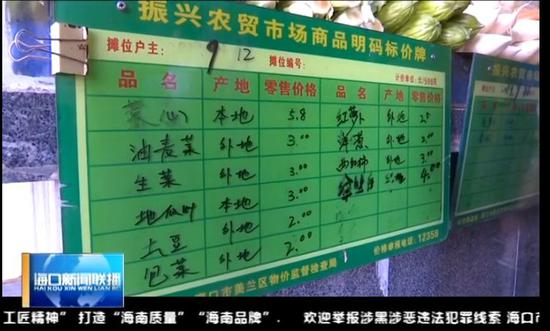 振兴农贸市场商品明码标价牌
摊位户主: 9 12 摊位编号:
计价单位:元/500克
品名 产地 零售价格 品名 产地 零售价格
菜心 本地 5.8 红萝卜 外地 2.0
油麦菜 外地 3.00 洋葱 外地 2.00
生菜 外地 3.00 西红柿 外地 3.00
地瓜叶 本地 3.00 4.00
土豆 外地 2.00
包菜 外地 2.00
海口市美兰区物价监督检查局 价格举报电话:12358
振兴农贸市场
海口新闻联播
HAI KOU XIN WEN LIAN BO
工匠精神” 打造“海南质量”“海南品牌”. 欢迎举报涉黑涉恶违法犯罪线索 海口市